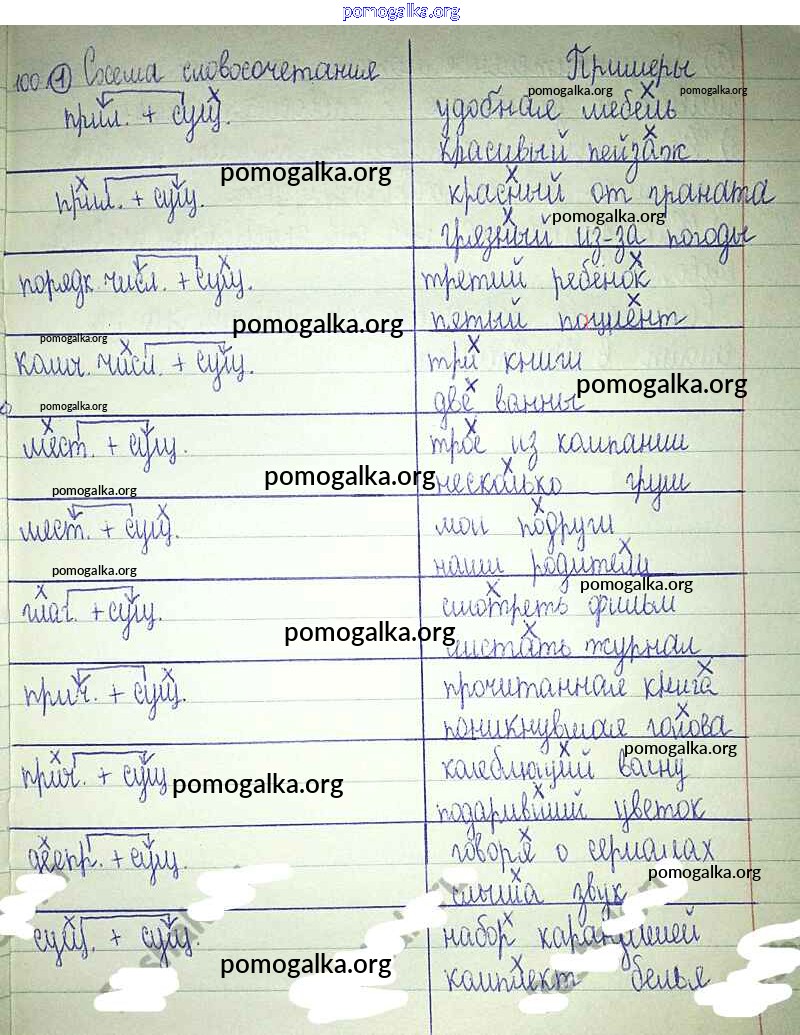 pomogalka.org
100. 1 Схема словосочетания Примеры
pomogalka.org pomogalka.org
прил. + сущ. удобная мебель
красивый пейзаж
pomogalka.org
прил. + сущ. красный от граната
pomogalka.org
грязный из-за погоды
порядк. числ. + сущ. третий ребёнок
пятый пациент
pomogalka.org
pomogalka.org
колич. числ. + сущ. три книги
pomogalka.org
две ванны
pomogalka.org
мест. + сущ. трое из компании
pomogalka.org
несколько груш
pomogalka.org
мест. + сущ. мои подруги
наши родители
pomogalka.org
pomogalka.org
глаг. + сущ. смотреть фильм
pomogalka.org
листать журнал
прич. + сущ. прочитанная книга
поникнувшая голова
pomogalka.org
прич. + сущ. колеблющий волну
pomogalka.org
подаривший цветок
деепр. + сущ. говоря о сериалах
pomogalka.org
слыша звук
сущ. + сущ. набор карандашей
pomogalka.org
комплект белья